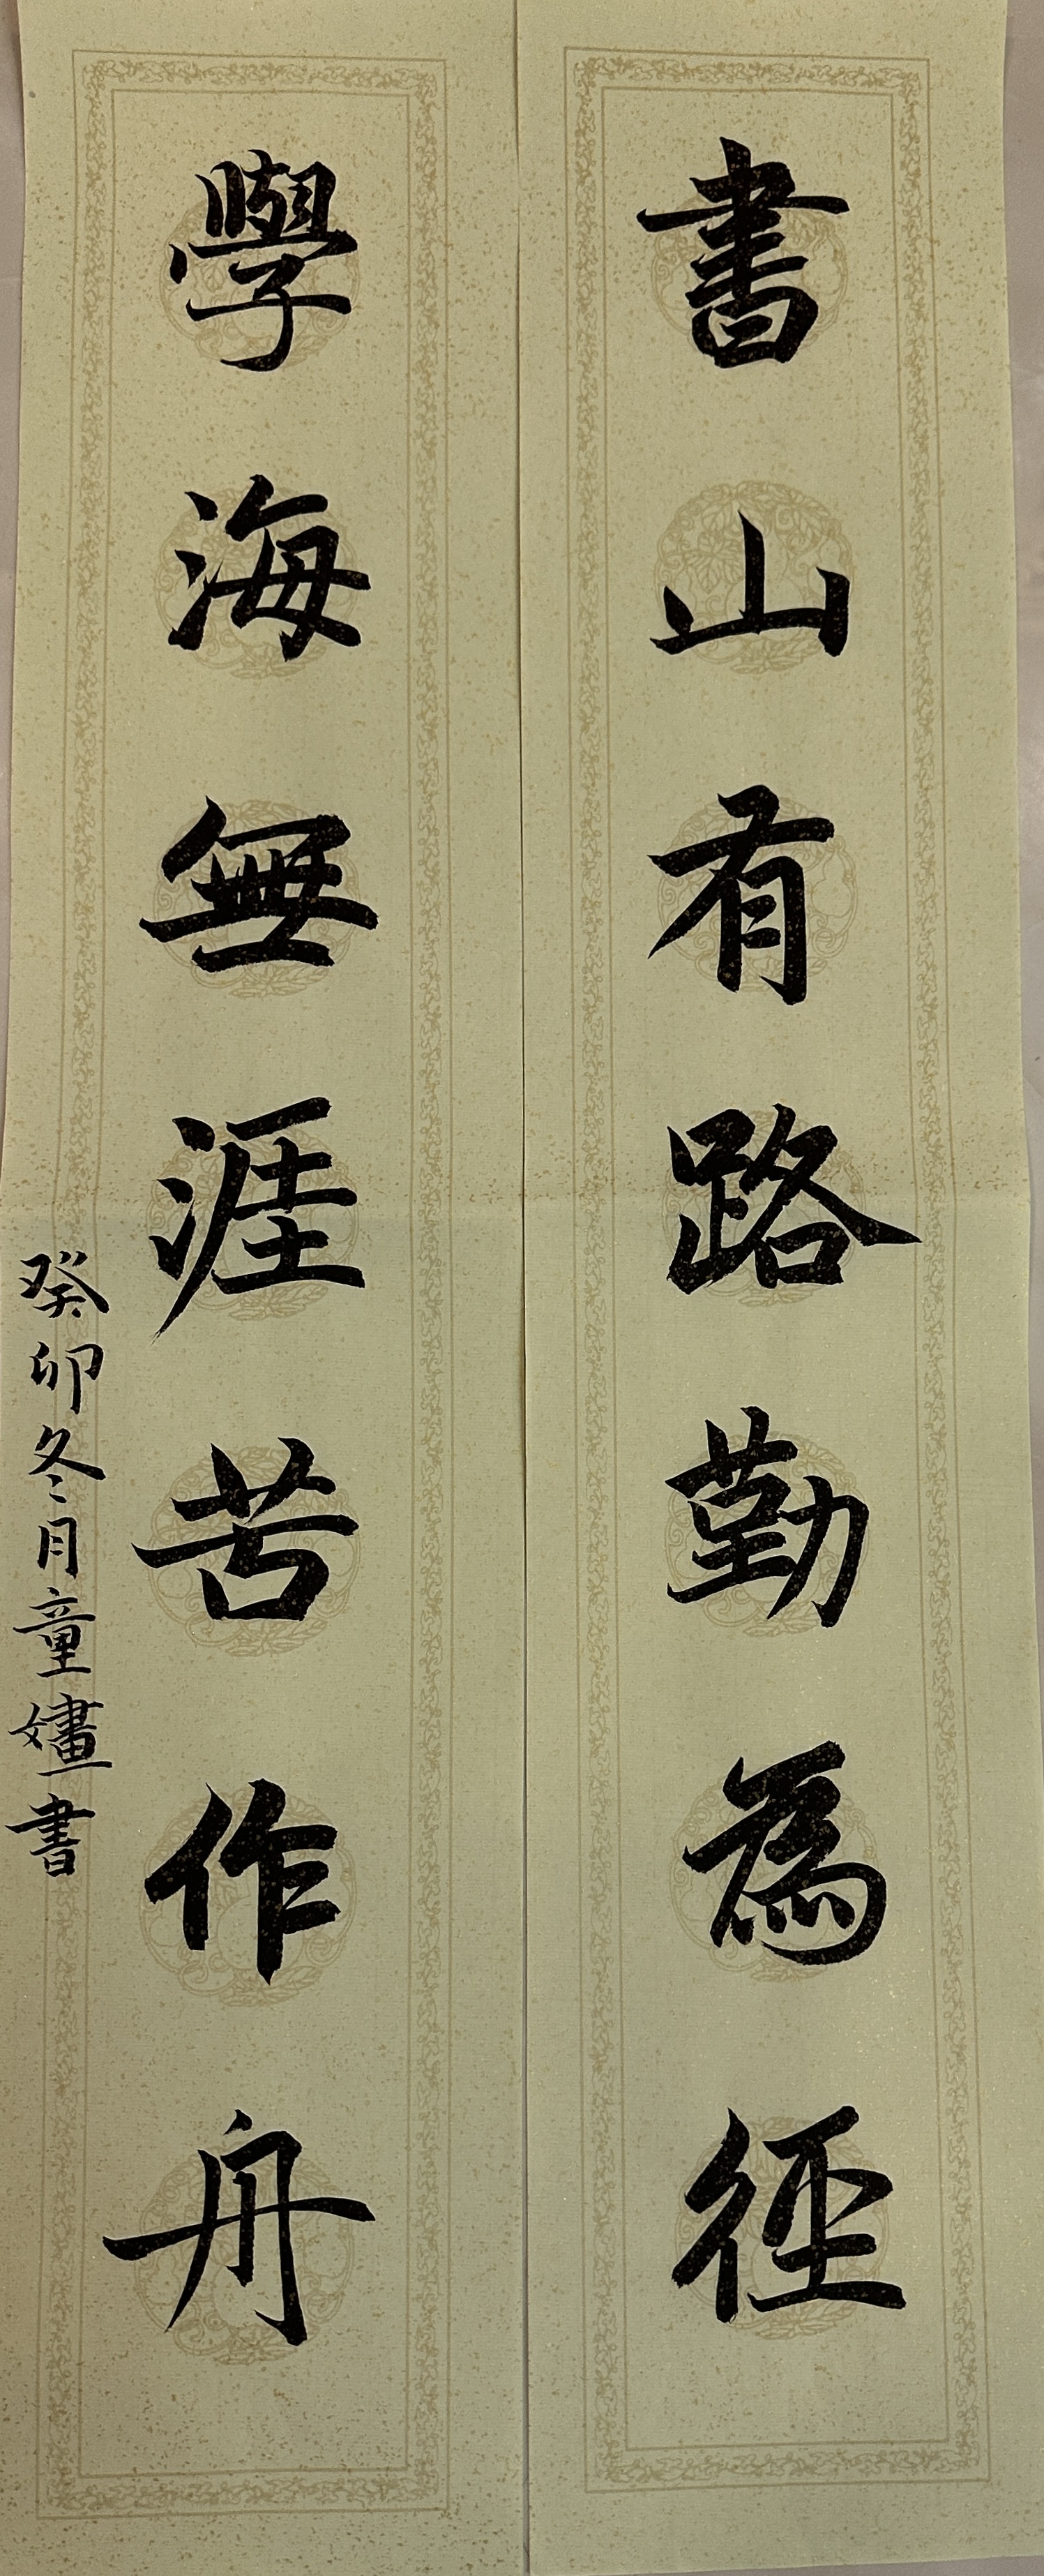 書山有路勤為徑
學海無涯苦作舟
癸卯冬月童嫿書